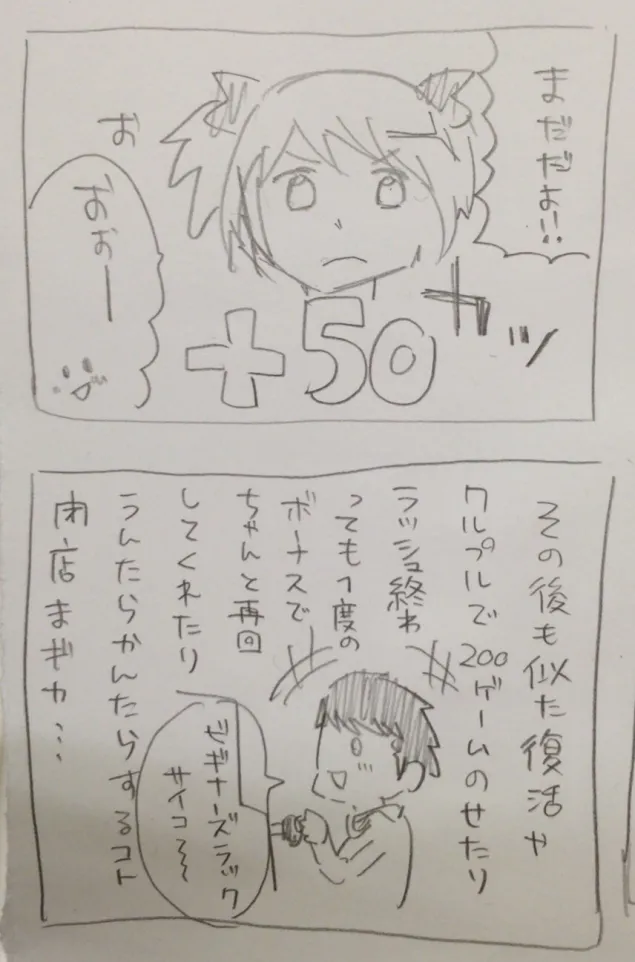 まだだよ!!
カッ
+50
お
おぉー
その後も似た復活や
クルプルで200ゲームのせたり
ラッシュ終わ
っても1度の
ボーナスで
ちゃんと再回
してくれたり
うんたらかんたらするコト
閉店まぎわ…
ビギナーズラック
サイコ〜〜